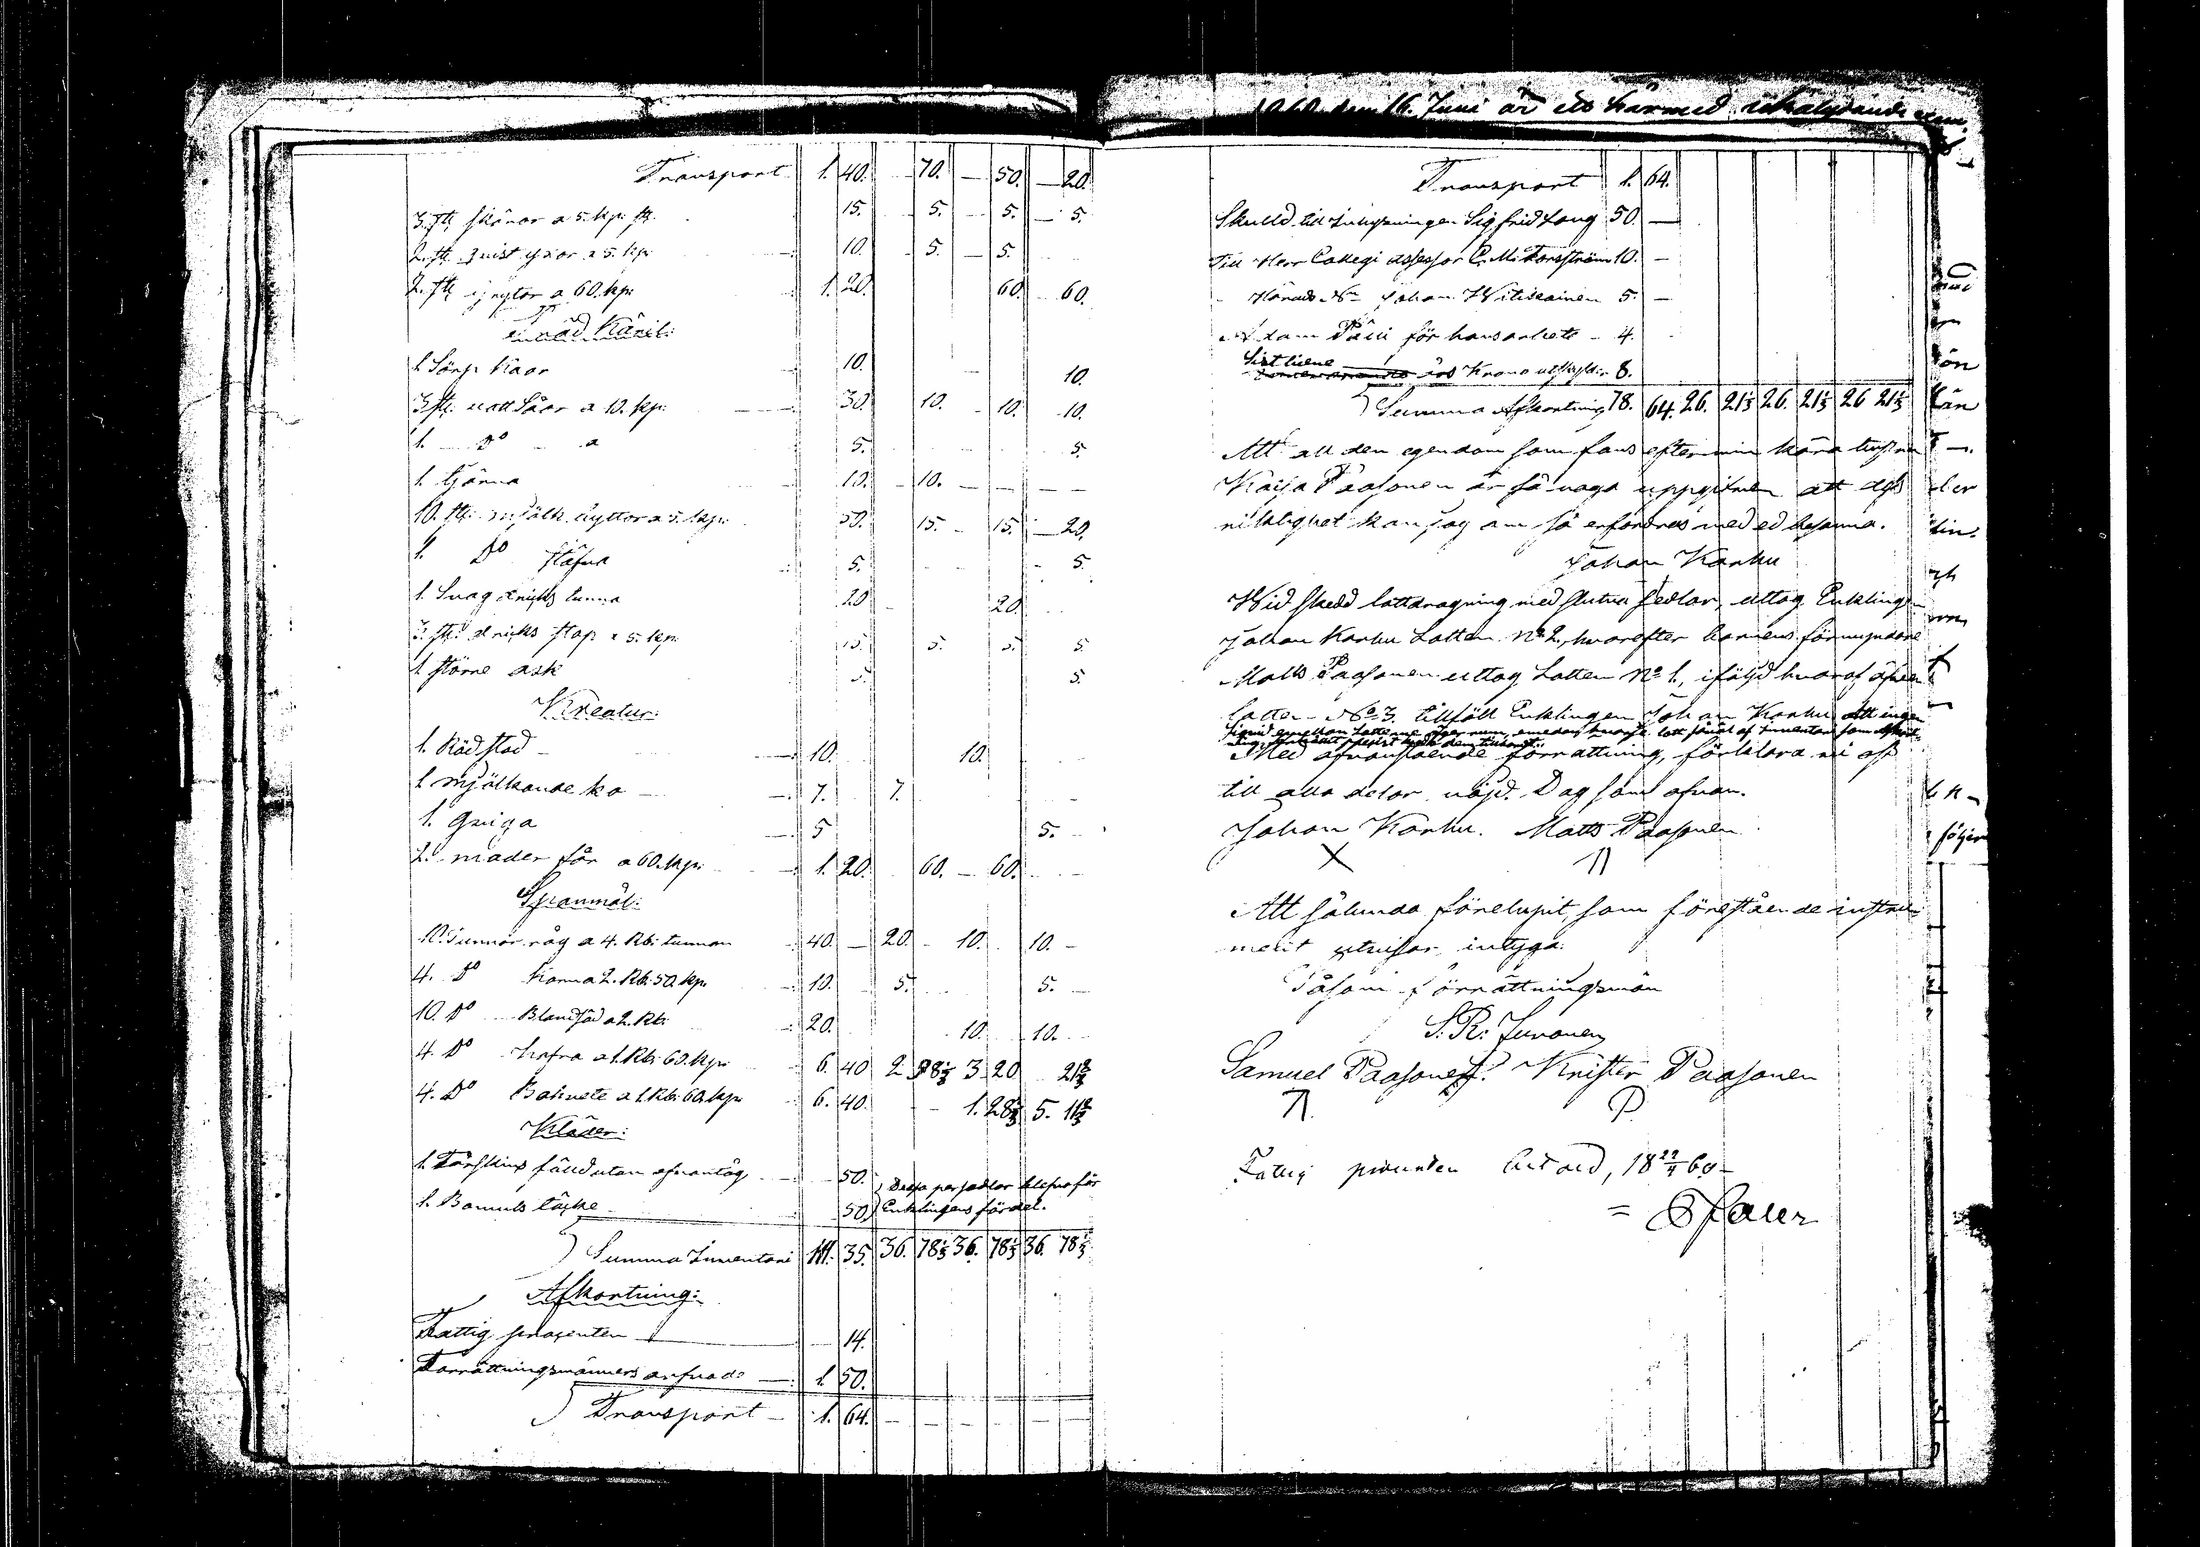 1860 den 16. Juni är ett härmed likalydande
Transport 1. 40. 70. — 50. — 20.
3. st. skäror a 5. kp. st. 15. 5. — 5. — 5.
2. st. qvist yxor a 5. kp. 10. 5. — 5.
2. st. grytor a 60. kp. 1. 20. 60. 60.
Träd Käril:
1. Sörp Kaar 10. 10.
3. st. watt Såar a 10. kp. 30. 10. 10. 10.
1. Do a 5. 5.
1. tjärna 10. 10. — — —
10. st. mjölk byttor a 5. kp. 50. 15. — 15. — 20.
1. Do stäfva 5. 5.
1. Svag dricks tunna 20 20
3. st. dricks stop a 5. kp. 15. 5. 5. 5.
1. större ask 5. 5.
Kreatur:
1. Röd stod — 10. 10.
1. mjölkande ko — 7. 7.
1. Qviga 5 5.
2. moder får a 60. kp. 1. 20. 60. — 60.
Spanmål:
10. Tunnor råg a 4. Rb. tunnan 40. — 20. 10. 10. —
4. Do Korn a 2. Rb. 50. kp. 10. 5. 5. —
10. Do Blandsäd a 2. Rb. 20. 10. 10.
4. Do hafra a 1. Rb. 60. kp. 6. 40 2 88⅓ 3 20 21⅔
4. Do Bohvete a 1. Rb. 60. kp. 6. 40. 1. 28⅓ 5. 11⅔
Kläder:
1. Fårskins fäll utan ofvantög 50. Dessa persedlar blefvo för
1. Bomuls täcke 50 Enklingens fördel.
Summa Inventarii 111. 35. 36. 78⅓ 36. 78⅓ 36. 78⅓
Afkortning:
Fattig procenten 14.
Förrättningsmännens arfvode — 1. 50.
Transport — 1. 64. — — — —
Transport 1. 64.
Skulld till Inhysningen Sigfrid Laug 50. —
Till Herr Collegi assessor C. M. Forsström 10. —
Johan Witikainen 5. —
Adam för hans arbete — 4.
Krono utskylder 8.
Summa Afkortning 78. 64. 26. 21⅓ 26. 21⅓ 26 21⅓
Att all den egendom som fans efter min kära hustru
Kaisa Paasonen är så noga uppgifven att dess
riktighet kan jag om så erfordras med ed besanna.
Johan Karhu
Wid skedd lottdragning med slutna sedlar, uttog Enklingen
Johan Karhu Lotten No 2, hvarefter barnens förmyndare
Matts Paasonen uttog Lotten No 1., ifäljd hvaraf äfven
Lotten No 3. tillföll Enklingen Johan Karhu Att ingen
Med ofvanstående förrättning, förklara vi oss
till alla delar nöjd. Dag som ofvan.
Johan Karhu. Matts Paasonen
X
Att sålunda förelupit, som förestående instru-
ment utvisar, intyga:
Såsom förrättningsmän
S. R. Juvonen
Samuel Paasonen. Krister Paasonen
P
Fattig procenten betald, 18 22/9 60 —